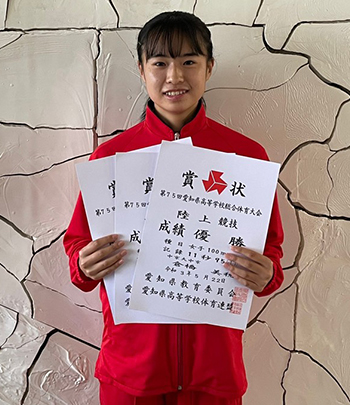 賞 状
第75回愛知県高等学校総合体育大会
陸上競技
成績 優 勝
種目 女子100m
記録 11秒95
令和3年5月22日
愛知県教育委員会
愛知県高等学校体育連盟
賞
第75
成
賞
第75